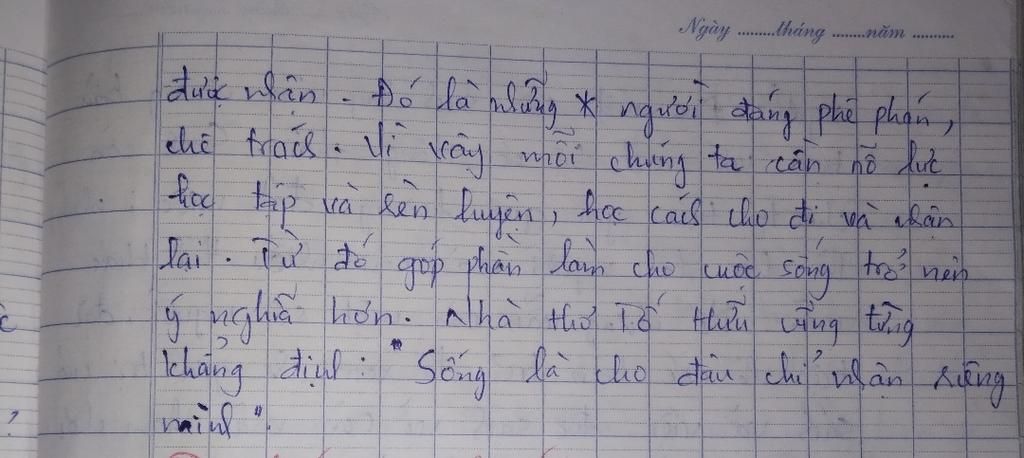 Ngày .........tháng ........năm ..........
được nhận. Đó là những * người đáng phê phán,
chê trách. Vì vậy mỗi chúng ta cần nỗ lực
học tập và rèn luyện, học cách cho đi và nhận
lại. Từ đó góp phần làm cho cuộc sống trở nên
ý nghĩa hơn. Nhà thơ Tố Hữu cũng từng
khẳng định: "Sống là cho đâu chỉ nhận riêng
mình".
c
?